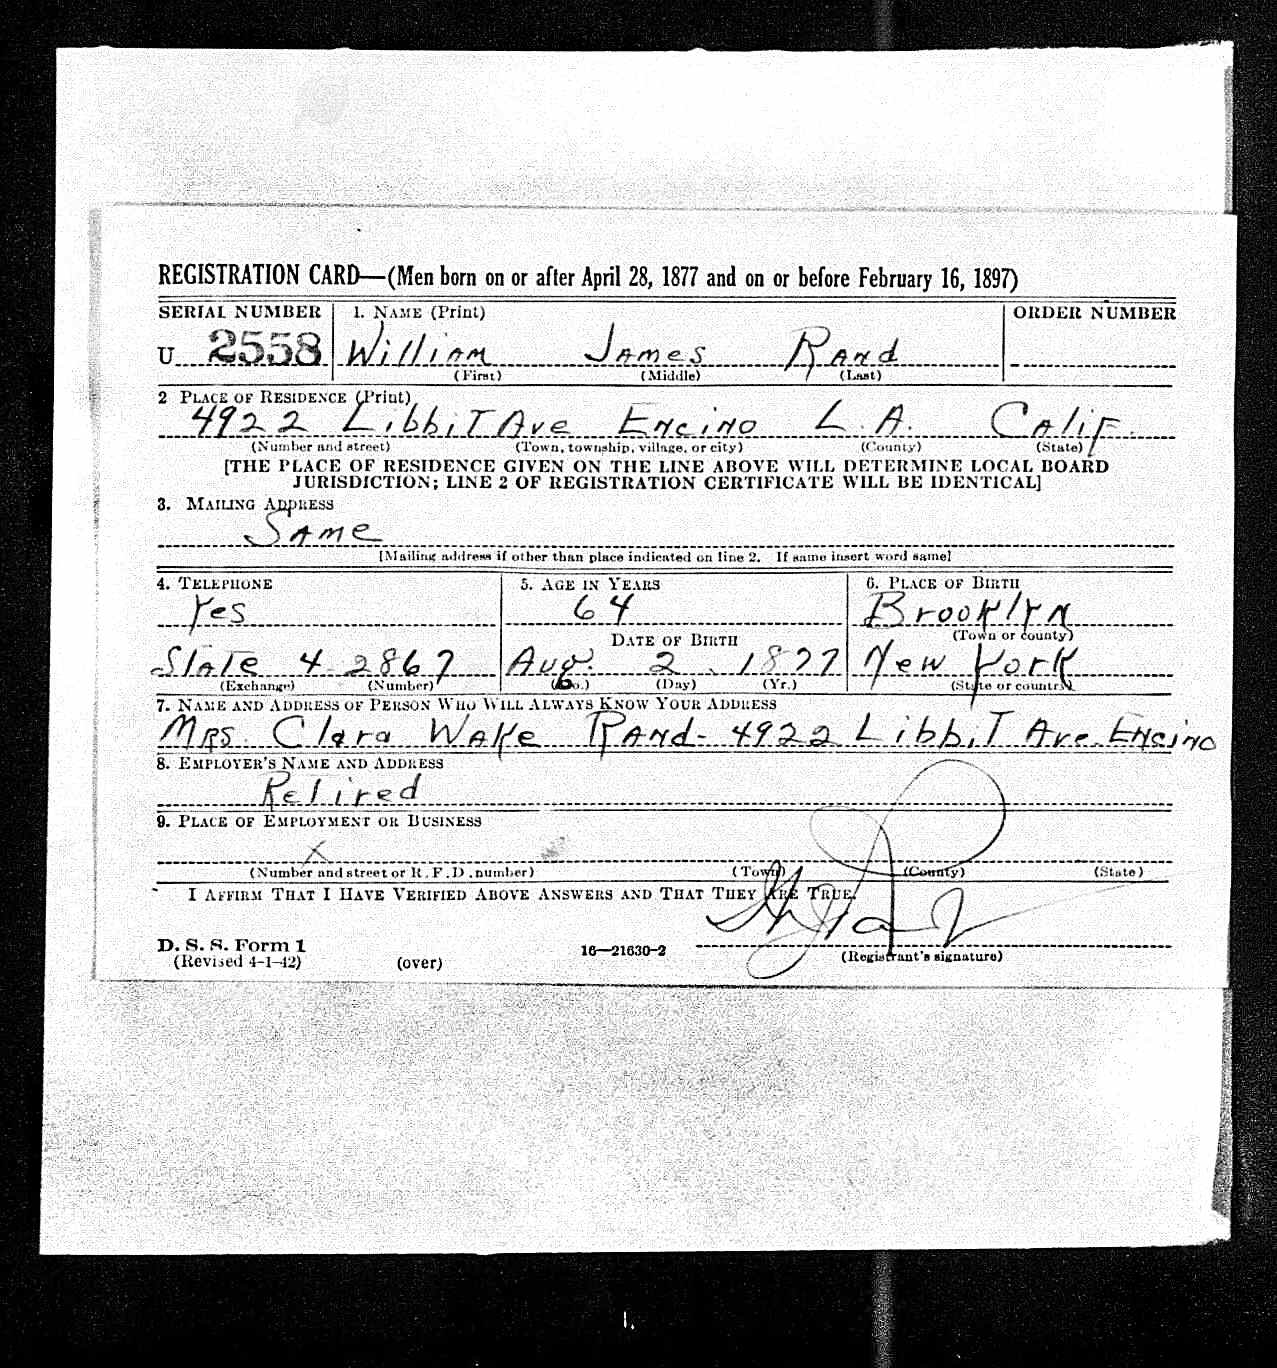 REGISTRATION CARD—(Men born on or after April 28, 1877 and on or before February 16, 1897)
SERIAL NUMBER 1. NAME (Print) ORDER NUMBER
U 2558 William James Rand
(First) (Middle) (Last)
2 PLACE OF RESIDENCE (Print)
4922 LibbiT Ave Encino L.A. Calif.
(Number and street) (Town, township, village, or city) (County) (State)
[THE PLACE OF RESIDENCE GIVEN ON THE LINE ABOVE WILL DETERMINE LOCAL BOARD
JURISDICTION; LINE 2 OF REGISTRATION CERTIFICATE WILL BE IDENTICAL]
3. MAILING ADDRESS
Same
[Mailing address if other than place indicated on line 2. If same insert word same]
4. TELEPHONE 5. AGE IN YEARS 6. PLACE OF BIRTH
Yes 64 Brooklyn
DATE OF BIRTH (Town or county)
State 4 2867 Aug. 2 1877 New York
(Exchange) (Number) (Mo.) (Day) (Yr.) (State or country)
7. NAME AND ADDRESS OF PERSON WHO WILL ALWAYS KNOW YOUR ADDRESS
Mrs. Clara Wake Rand - 4922 LibbiT Ave. Encino
8. EMPLOYER'S NAME AND ADDRESS
Retired
9. PLACE OF EMPLOYMENT OR BUSINESS
X
(Number and street or R. F. D. number) (Town) (County) (State)
I AFFIRM THAT I HAVE VERIFIED ABOVE ANSWERS AND THAT THEY ARE TRUE.
D. S. S. Form 1
(Revised 4-1-42) (over) 16—21630-2 (Registrant's signature)